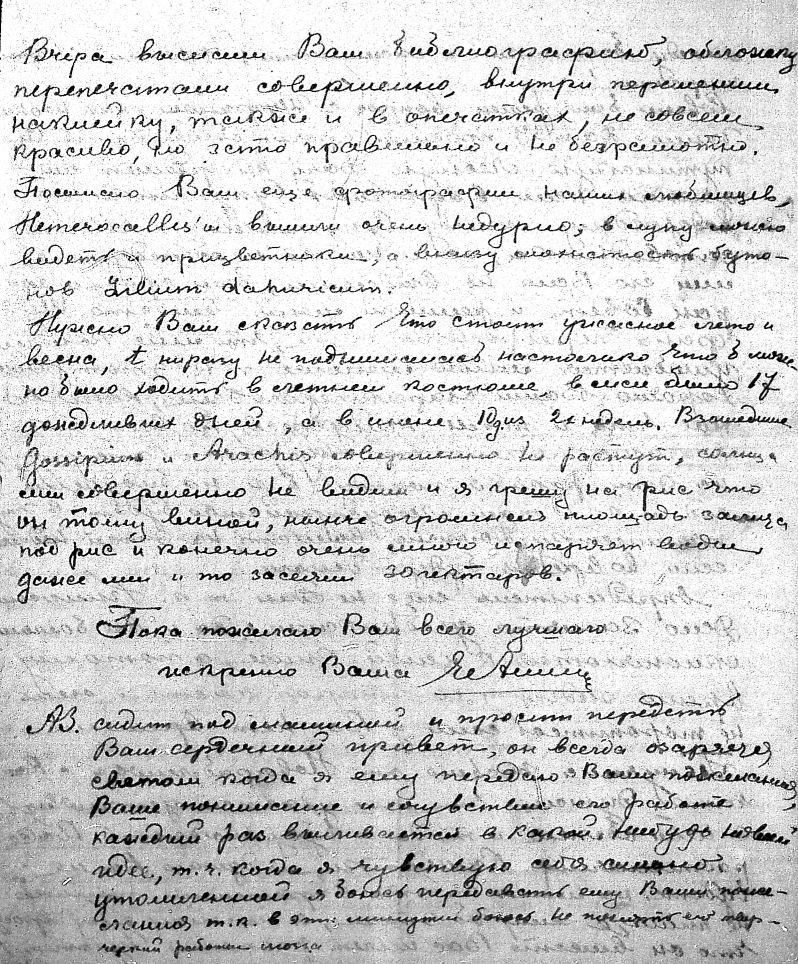 Вчера выслали Вам библиографию, обложку
перепечатали совершенно, внутри переменили
наклейку, также и в опечатках, не совсем
красиво, но зато правильно и не безграмотно.
Посылаю Вам еще фотографии наших любимцев,
Hemerocallis'ы вышли очень недурно; в лупу можно
видеть и прицветники, а внизу мохнатость буто-
нов Lilium dahuricum.
Нужно Вам сказать что стоит ужасное лето и
весна, t ни разу не подымалась настолько что б мож-
но было ходить в летнем костюме в мае было 17
дождливых дней, а в июне 10 из 2х недель. Взошедшие
Gossipium и Arachis совершенно не растут, солнца
мы совершенно не видим и я грешу на рис что
он тому виной, нынче огромная площадь занята
под рис и конечно очень много испаряет воды
даже мы и то засеяли 30 гектаров.
Пока пожелаю Вам всего лучшаго
искренно Ваша
АВ. сидит под машиной и просит передать
Вам сердечный привет, он всегда озаряется
светом когда я ему передаю Ваши пожелания,
Ваше понимание и сочувствие его работе
каждый раз выливается в какой нибудь новой
идее, т.ч. когда я чувствую себя сильно
утомленной я боюсь передавать ему Ваши поже-
лания т.к. в эти минуты боюсь не понять его
работы мозга